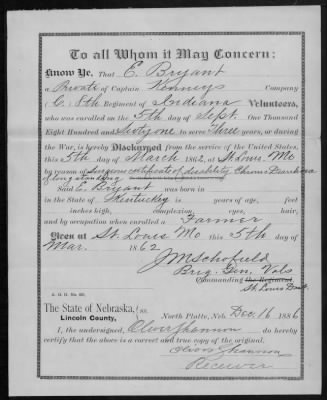 To all Whom it May Concern:
Know Ye, That E. Bryant
a Private of Captain Company
(C.) 8th Regiment of Indiana Volunteers,
who was enrolled on the 5th day of Sept. One Thousand
Eight Hundred and Sixty one to serve Three years, or during
the War, is hereby Discharged from the service of the United States,
this 5th day of March 1862, at St. Louis, Mo
by reason of Surgeons certificate of disability Chronic Diarrhoea
of long standing
Said E. Bryant was born in
in the State of Kentucky is years of age, feet
inches high, complexion, eyes, hair,
and by occupation when enrolled a Farmer
Given at St. Louis Mo this 5th day of
Mar. 1862
J M Schofield
Brig. Gen. Vols
Commanding the Regiment
St. Louis Dist.
A. G. O. No.
The State of Nebraska, } ss.
Lincoln County,
North Platte, Neb. Dec. 16 1886
I, the undersigned, Oliver Shannon do hereby
certify that the above is a correct and true copy of the original.
Oliver Shannon
Receiver